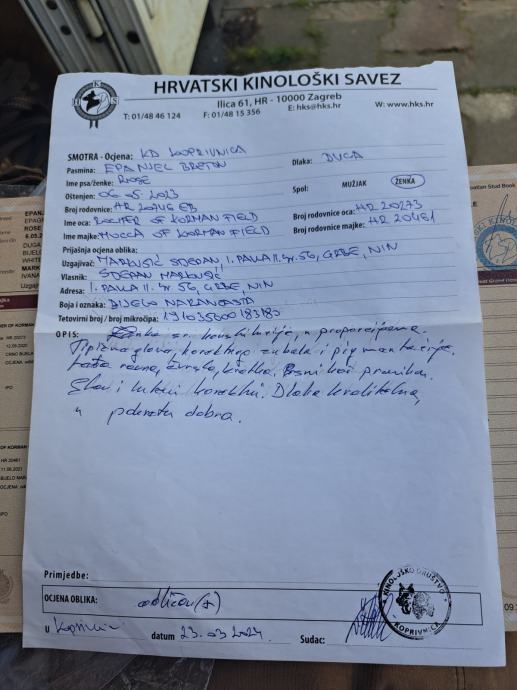 HRVATSKI KINOLOŠKI SAVEZ
Ilica 61, HR - 10000 Zagreb
T: 01/48 46 124 F: 01/48 15 356 E: hks@hks.hr W: www.hks.hr
SMOTRA - Ocjena: KD KOPRIVNICA
Pasmina: EPANJEL BRETON Dlaka: DUGA
Ime psa/ženke: ROSE
Oštenjen: 06.05.2023 Spol: MUŽJAK ŽENKA
Broj rodovnice: HR 20746 EB Broj rodovnice oca: HR 20273
Ime oca: LOCHER OF KORMAN FIELD Broj rodovnice majke: HR 20461
Ime majke: MOCCA OF KORMAN FIELD
Prijašnja ocjena oblika:
Uzgajivač: MARKUŠIĆ STJEPAN, I. PAVLA II. br. 56, GRBE, NIN
Vlasnik: STJEPAN MARKUŠIĆ
Adresa: I. PAVLA II. br 56, GRBE, NIN
Boja i oznaka: BIJELO NARANČASTA
Tetovirni broj / broj mikročipa: 191035000183180
OPIS: Ženka sr. konstitucije, u proporcijama.
Tipična glava, korektnog zubala i pigmentacije.
Leđa ravna, čvrsta, kratka. Prsni koš pravilan.
Stav i kutevi korektni. Dlaka kvalitetna,
u pokretu dobra.
Primjedbe:
OCJENA OBLIKA: odličan (5)
u Koprivnici datum 23.03.2024. Sudac:
KINOLOŠKO DRUŠTVO
KOPRIVNICA